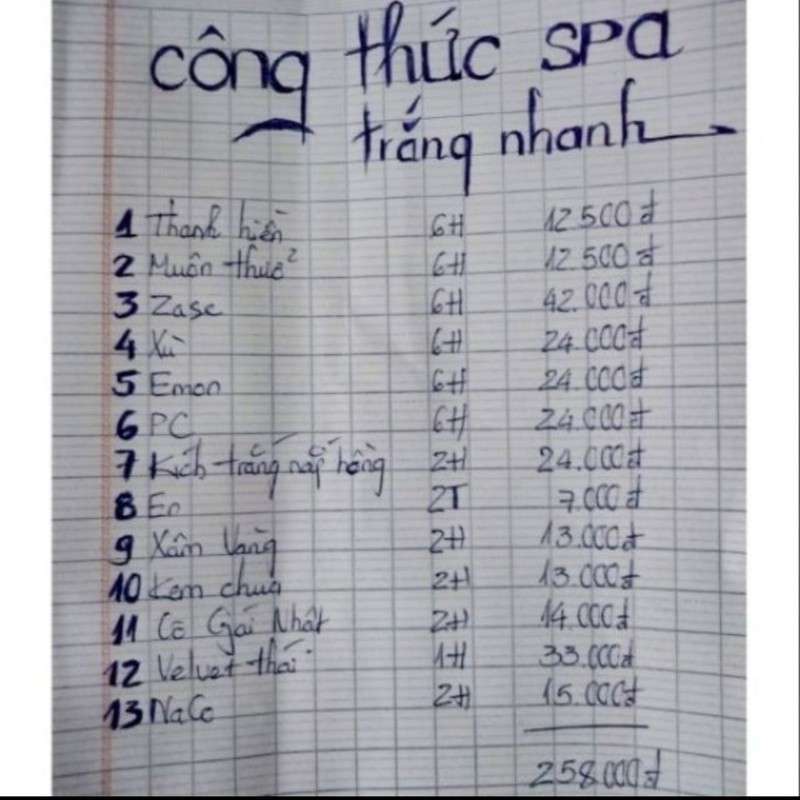 công thức SPA
trắng nhanh
1 Thanh hiền 6H 12.500đ
2 Muôn thuê² 6H 12.500đ
3 Zase 6H 42.000đ
4 Xù 6H 24.000đ
5 Emon 6H 24.000đ
6 PC 6H 24.000đ
7 Kích trắng nắp hồng 2H 24.000đ
8 En 2T 7.000đ
9 Xâm Vàng 2H 13.000đ
10 Kem chua 2H 13.000đ
11 Cô Gái Nhật 2H 14.000đ
12 Velvet thái 1H 33.000đ
13 NaCo 2H 15.000đ
258.000đ